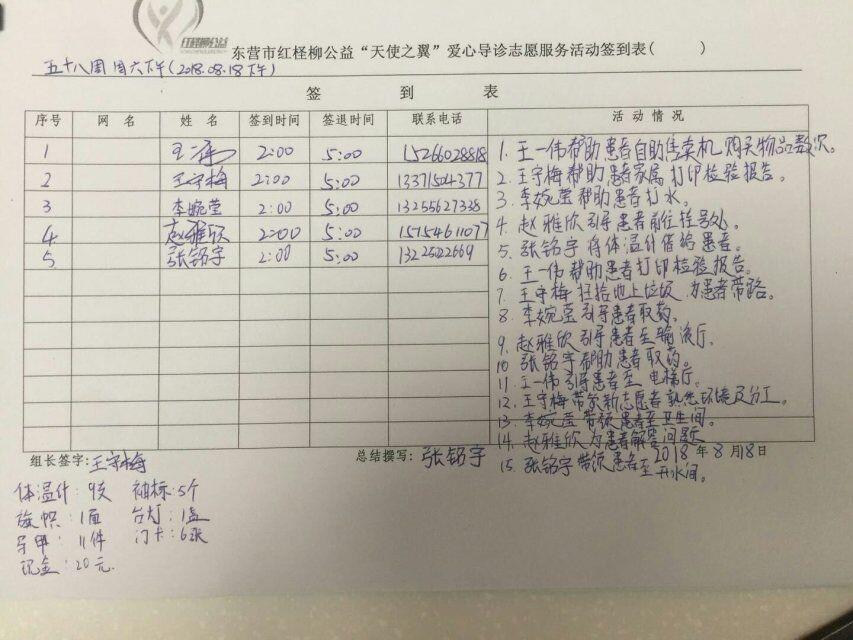 红柽柳公益
东营市红柽柳公益“天使之翼”爱心导诊志愿服务活动签到表( )
五十八周 周六下午(2018.08.18下午)
签 到 表
序号 网 名 姓 名 签到时间 签退时间 联系电话 活 动 情 况
1 王一伟 2:00 5:00 15266028818
2 王守梅 2:00 5:00 13371504377
3 李婉莹 2:00 5:00 13255627338
4 赵雅欣 2:00 5:00 15154611077
5 张铭宇 2:00 5:00
1. 王一伟帮助患者自助售卖机购买物品数次。
2. 王守梅帮助患者家属打印检验报告。
3. 李婉莹帮助患者打水。
4. 赵雅欣引导患者前往挂号处。
5. 张铭宇将体温计借给患者。
6. 王一伟帮助患者打印检验报告。
7. 王守梅捡拾地上垃圾,为患者带路。
8. 李婉莹引导患者取药。
9. 赵雅欣引导患者至输液厅。
10. 张铭宇帮助患者取药。
11. 王一伟引导患者至电梯厅。
12. 王守梅带家新志愿者熟悉环境及分工。
13. 李婉莹带领患者至卫生间。
14. 赵雅欣为患者解答问题
15. 张铭宇带领患者至开水间。
组长签字:王守梅 总结撰写:张铭宇 2018年8月18日
体温计:9支 袖标:5个
旗帜:1面 台灯:1盏
马甲:11件 门卡:6张
现金:20元.